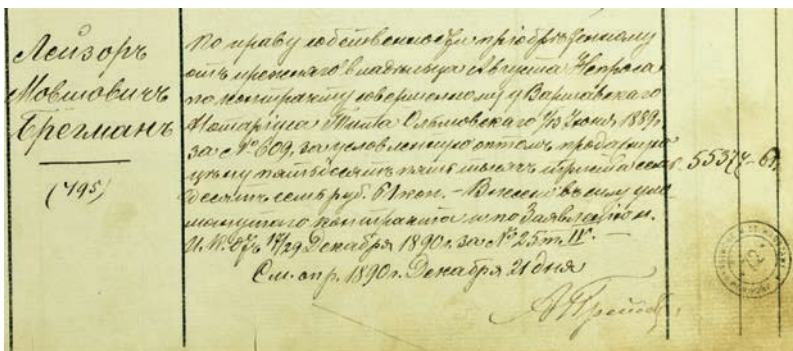 Лейзоръ
Мовшовичъ
Брегманъ
(795)
По праву собственности пріобрѣтенному
отъ прежняго владѣльца Августа
по контракту совершенному у Варшавскаго
Нотаріуса Ольшовскаго 1/13 Іюня 1889 г.
за № 609, за условленную оптомъ продажную
цѣну пятьдесятъ пять тысячъ триста семь
десятъ семь руб. 61 коп. – Внесено въ силу упо
мянутаго контракта и по Заявленію
17/29 Декабря 1890 г. за № 25 т. IV. —
См. опр. 1890 г. Декабря 21 дня
55377 – 61